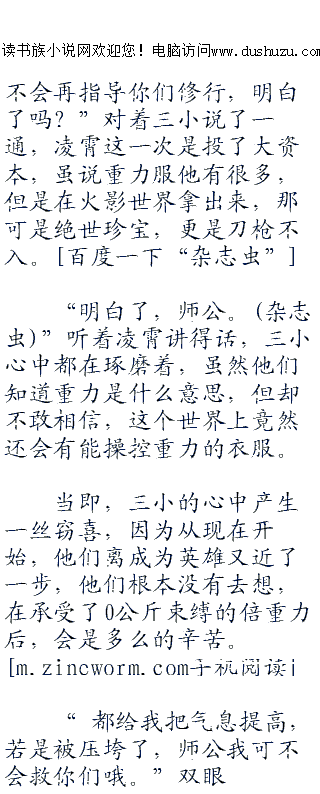 读书族小说网欢迎您！电脑访问www.dushuzu.com
不会再指导你们修行，明白
了吗？”对着三小说了一
通，凌霄这一次是投了大资
本，虽说重力服他有很多，
但是在火影世界拿出来，那
可是绝世珍宝，更是刀枪不
入。[百度一下“杂志虫”]
“明白了，师公。(杂志
虫)”听着凌霄讲得话，三小
心中都在琢磨着，虽然他们
知道重力是什么意思，但却
不敢相信，这个世界上竟然
还会有能操控重力的衣服。
当即，三小的心中产生
一丝窃喜，因为从现在开
始，他们离成为英雄又近了
一步，他们根本没有去想，
在承受了0公斤束缚的倍重力
后，会是多么的辛苦。
[m.zincworm.com手机阅读|
“ 都给我把气息提高，
若是被压垮了，师公我可不
会救你们哦。”双眼